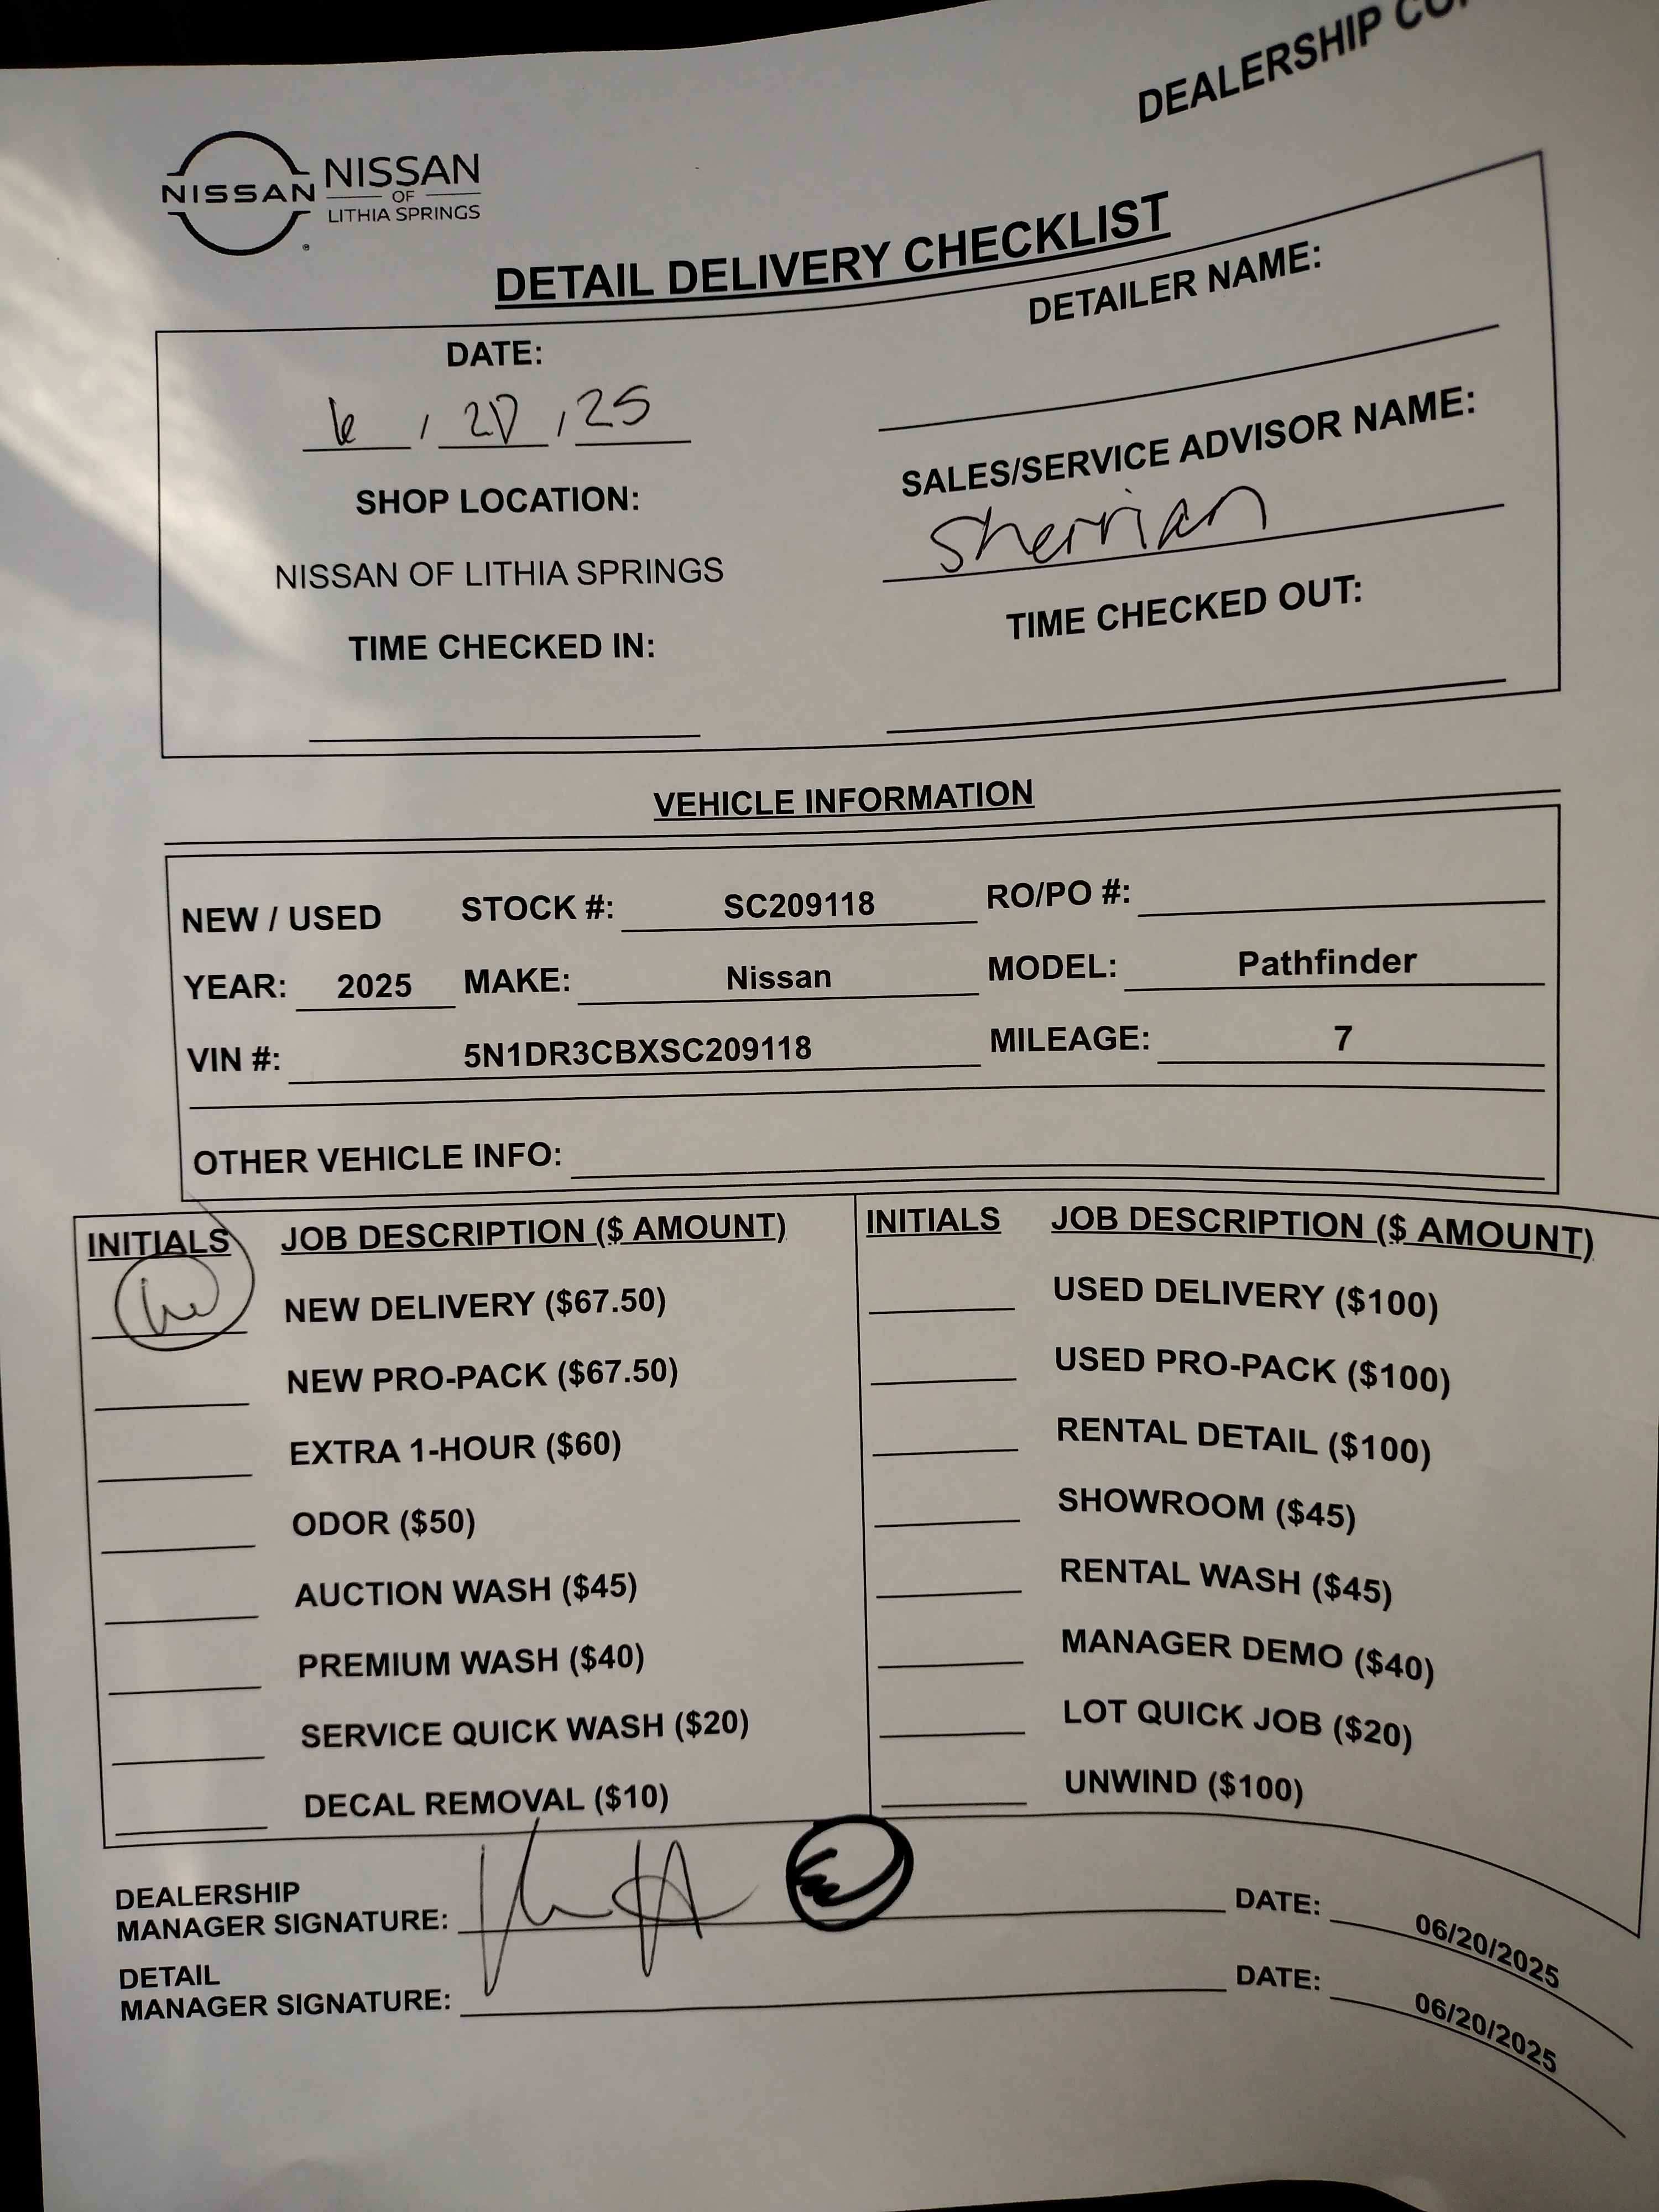 DEALERSHIP
NISSAN NISSAN
OF
LITHIA SPRINGS
DETAIL DELIVERY CHECKLIST
DATE:
6 / 20 / 25
DETAILER NAME:
SHOP LOCATION:
NISSAN OF LITHIA SPRINGS
SALES/SERVICE ADVISOR NAME:
Sherrian
TIME CHECKED IN:
TIME CHECKED OUT:
VEHICLE INFORMATION
NEW / USED STOCK #: SC209118 RO/PO #:
YEAR: 2025 MAKE: Nissan MODEL: Pathfinder
VIN #: 5N1DR3CBXSC209118 MILEAGE: 7
OTHER VEHICLE INFO:
INITIALS JOB DESCRIPTION ($ AMOUNT)
NEW DELIVERY ($67.50)
NEW PRO-PACK ($67.50)
EXTRA 1-HOUR ($60)
ODOR ($50)
AUCTION WASH ($45)
PREMIUM WASH ($40)
SERVICE QUICK WASH ($20)
DECAL REMOVAL ($10)
INITIALS JOB DESCRIPTION ($ AMOUNT)
USED DELIVERY ($100)
USED PRO-PACK ($100)
RENTAL DETAIL ($100)
SHOWROOM ($45)
RENTAL WASH ($45)
MANAGER DEMO ($40)
LOT QUICK JOB ($20)
UNWIND ($100)
DEALERSHIP
MANAGER SIGNATURE: DATE: 06/20/2025
DETAIL
MANAGER SIGNATURE: DATE: 06/20/2025